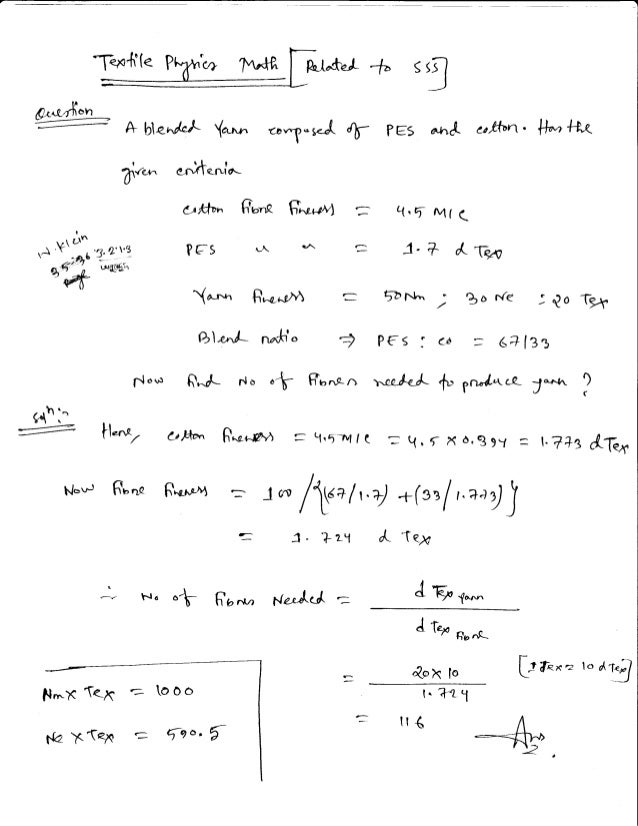 Textile Physics Math [Related to SSS]
Question
A blended Yarn composed of PES and cotton. Has the
given criteria
cotton fibre fineness = 4.5 MIC
W. Klein
PES " " = 1.7 d Tex
Yarn fineness = 50 Nm ; 30 Ne ; 20 Tex
Blend ratio ⇒ PES : co = 67/33
Now find No of fibres needed to produce yarn ?
Solⁿ:
Here, cotton fineness = 4.5 MIC = 4.5 X 0.394 = 1.773 d Tex
Now fibre fineness = 100 /{(67/1.7) + (33/1.773)}
= 1.724 d Tex
∴ No of fibres Needed = d Tex yarn
d tex fibre
= 20 X 10 [1 Tex = 10 d Tex]
1.724
= 116
Ans
Nm X Tex = 1000
Ne X Tex = 590.5